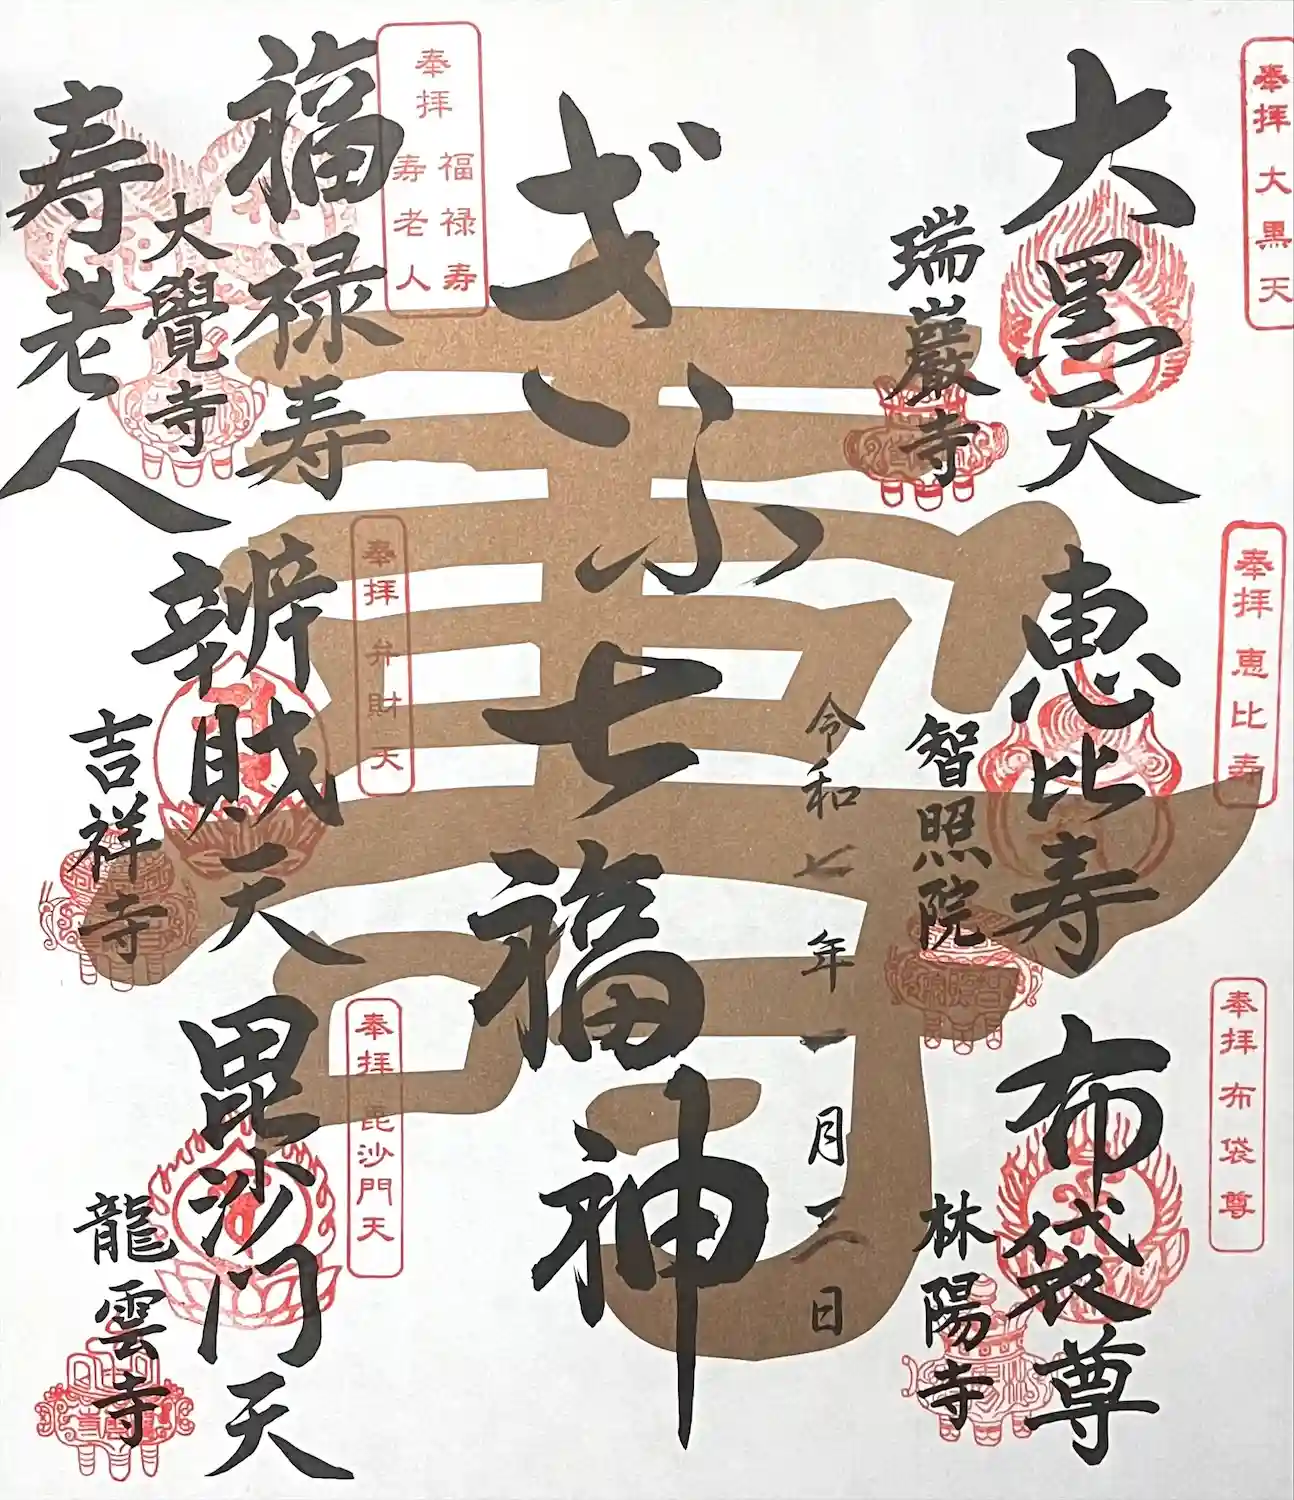 奉拝 大黒天
大黒天
瑞巖寺
奉拝 恵比寿
恵比寿
智照院
奉拝 布袋尊
布袋尊
林陽寺
壽
ぎふ七福神
令和七年一月三日
奉拝 福禄寿 寿老人
福禄寿
大覺寺
寿老人
奉拝 弁財天
辨財天
吉祥寺
奉拝 毘沙門天
毘沙門天
龍雲寺